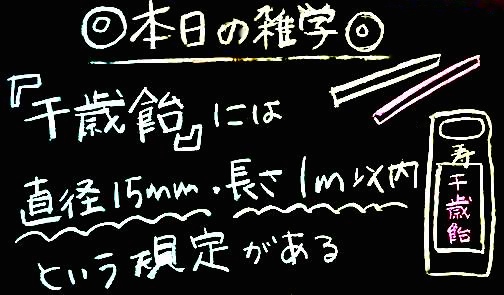 ◎本日の雑学◎
『千歳飴』には
直径15mm・長さ1m以内
という規定がある
寿
千歳飴